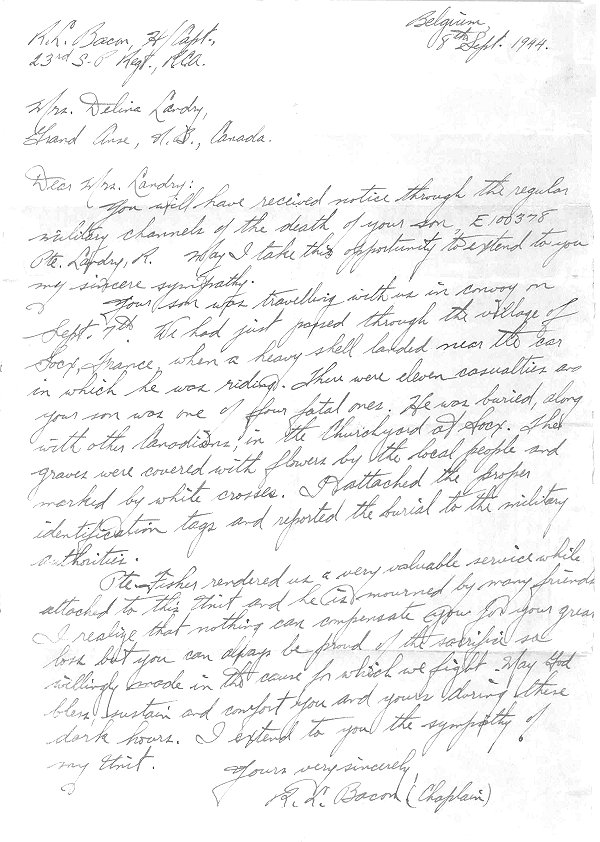 Belgium,
8th Sept. 1944.
R.L. Bacon, H/Capt.,
23rd S-P Regt., RCA.
Mrs. Delina Landry,
Grand Anse, N.B., Canada.
Dear Mrs. Landry:
You will have received notice through the regular
military channels of the death of your son, E.100378
Pte. Landry, R. May I take this opportunity to extend to you
my sincere sympathy.
Your son was travelling with us in convoy on
Sept. 7th. We had just passed through the village of
Socx, France, when a heavy shell landed near the car
in which he was riding. There were eleven casualties and
your son was one of four fatal ones. He was buried, along
with other Canadians, in the Churchyard at Socx. The
graves were covered with flowers by the local people and
marked by white crosses. I attached the proper
identification tags and reported the burial to the military
authorities.
Pte. Fisher rendered us a very valuable service while
attached to this Unit and he is mourned by many friends
I realize that nothing can compensate you for your great
loss but you can always be proud of the sacrifice so
willingly made in the cause for which we fight. May God
bless, sustain and comfort you and yours during these
dark hours. I extend to you the sympathy of
my Unit.
Yours very sincerely,
R. L. Bacon (Chaplain)